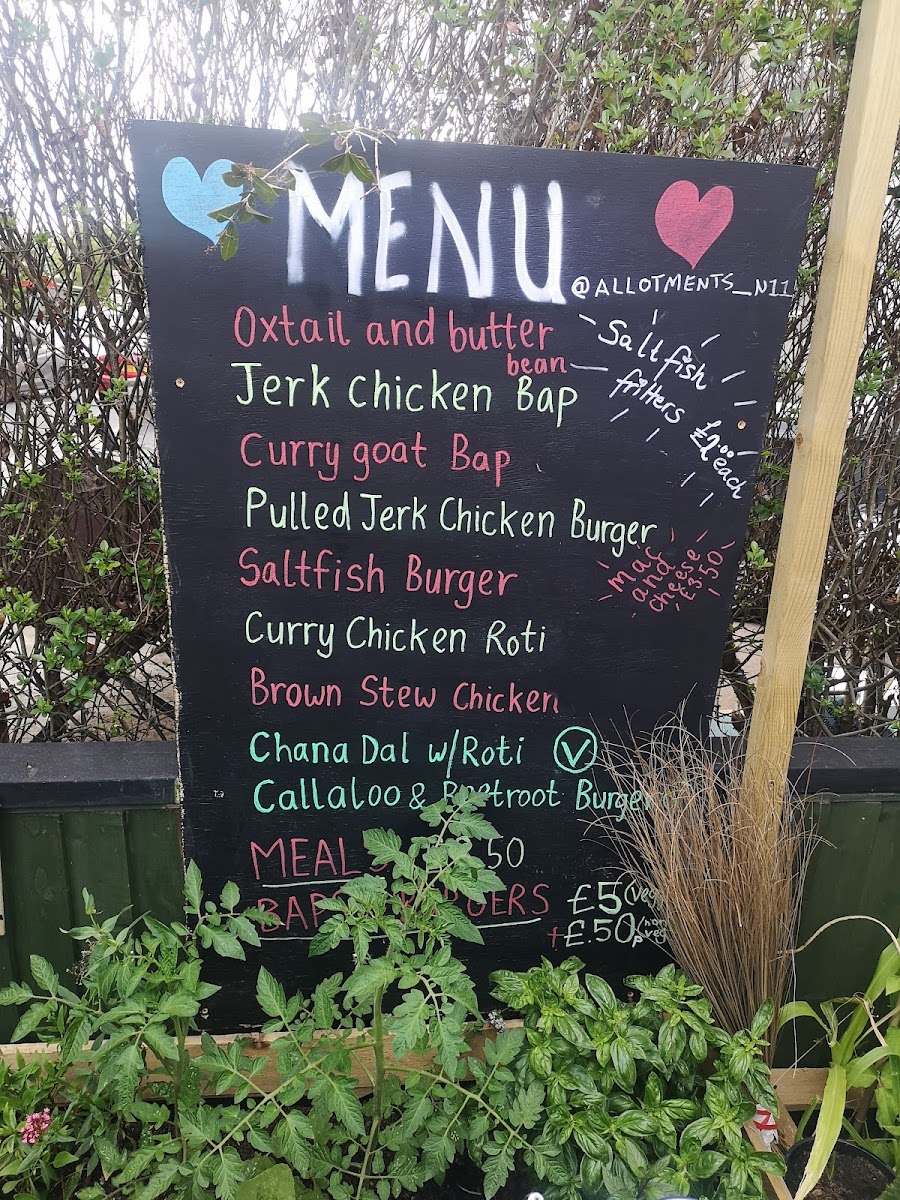 MENU
@ALLOTMENTS_N11
Oxtail and butter
bean
Jerk Chicken Bap
Curry goat Bap
Pulled Jerk Chicken Burger
Saltfish Burger
Curry Chicken Roti
Brown Stew Chicken
Chana Dal w/Roti V
Callaloo & Beetroot Burger
MEALS 50
BAPS BURGERS £5 (veg
+£.50p (non
veg
Saltfish
fritters
£2.00 each
Mac
and
cheese
£3.50